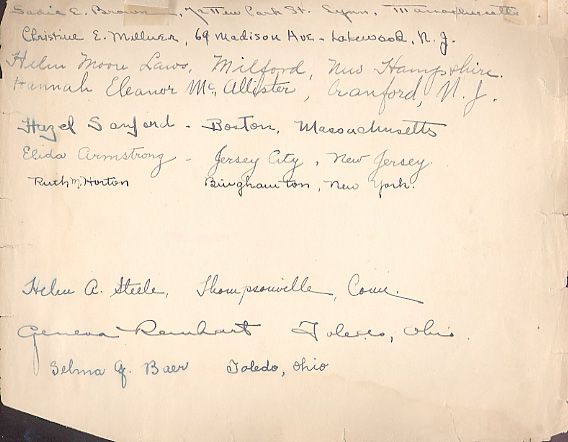 Sadie E. Brown, New Park St. Lynn, Massachusetts
Christine E. Millner, 69 Madison Ave - Lakewood, N. J.
Helen Moore Laws, Milford, New Hampshire.
Hannah Eleanor McAllister, Cranford, N. J.
Hazel Sanford - Boston, Massachusetts
Elida Armstrong - Jersey City, New Jersey.
Ruth M. Horton Binghamton, New York.
Helen A. Steele, Thompsonville, Conn.
Geneva Reinhart Toledo, Ohio.
Selma G. Baer Toledo, Ohio